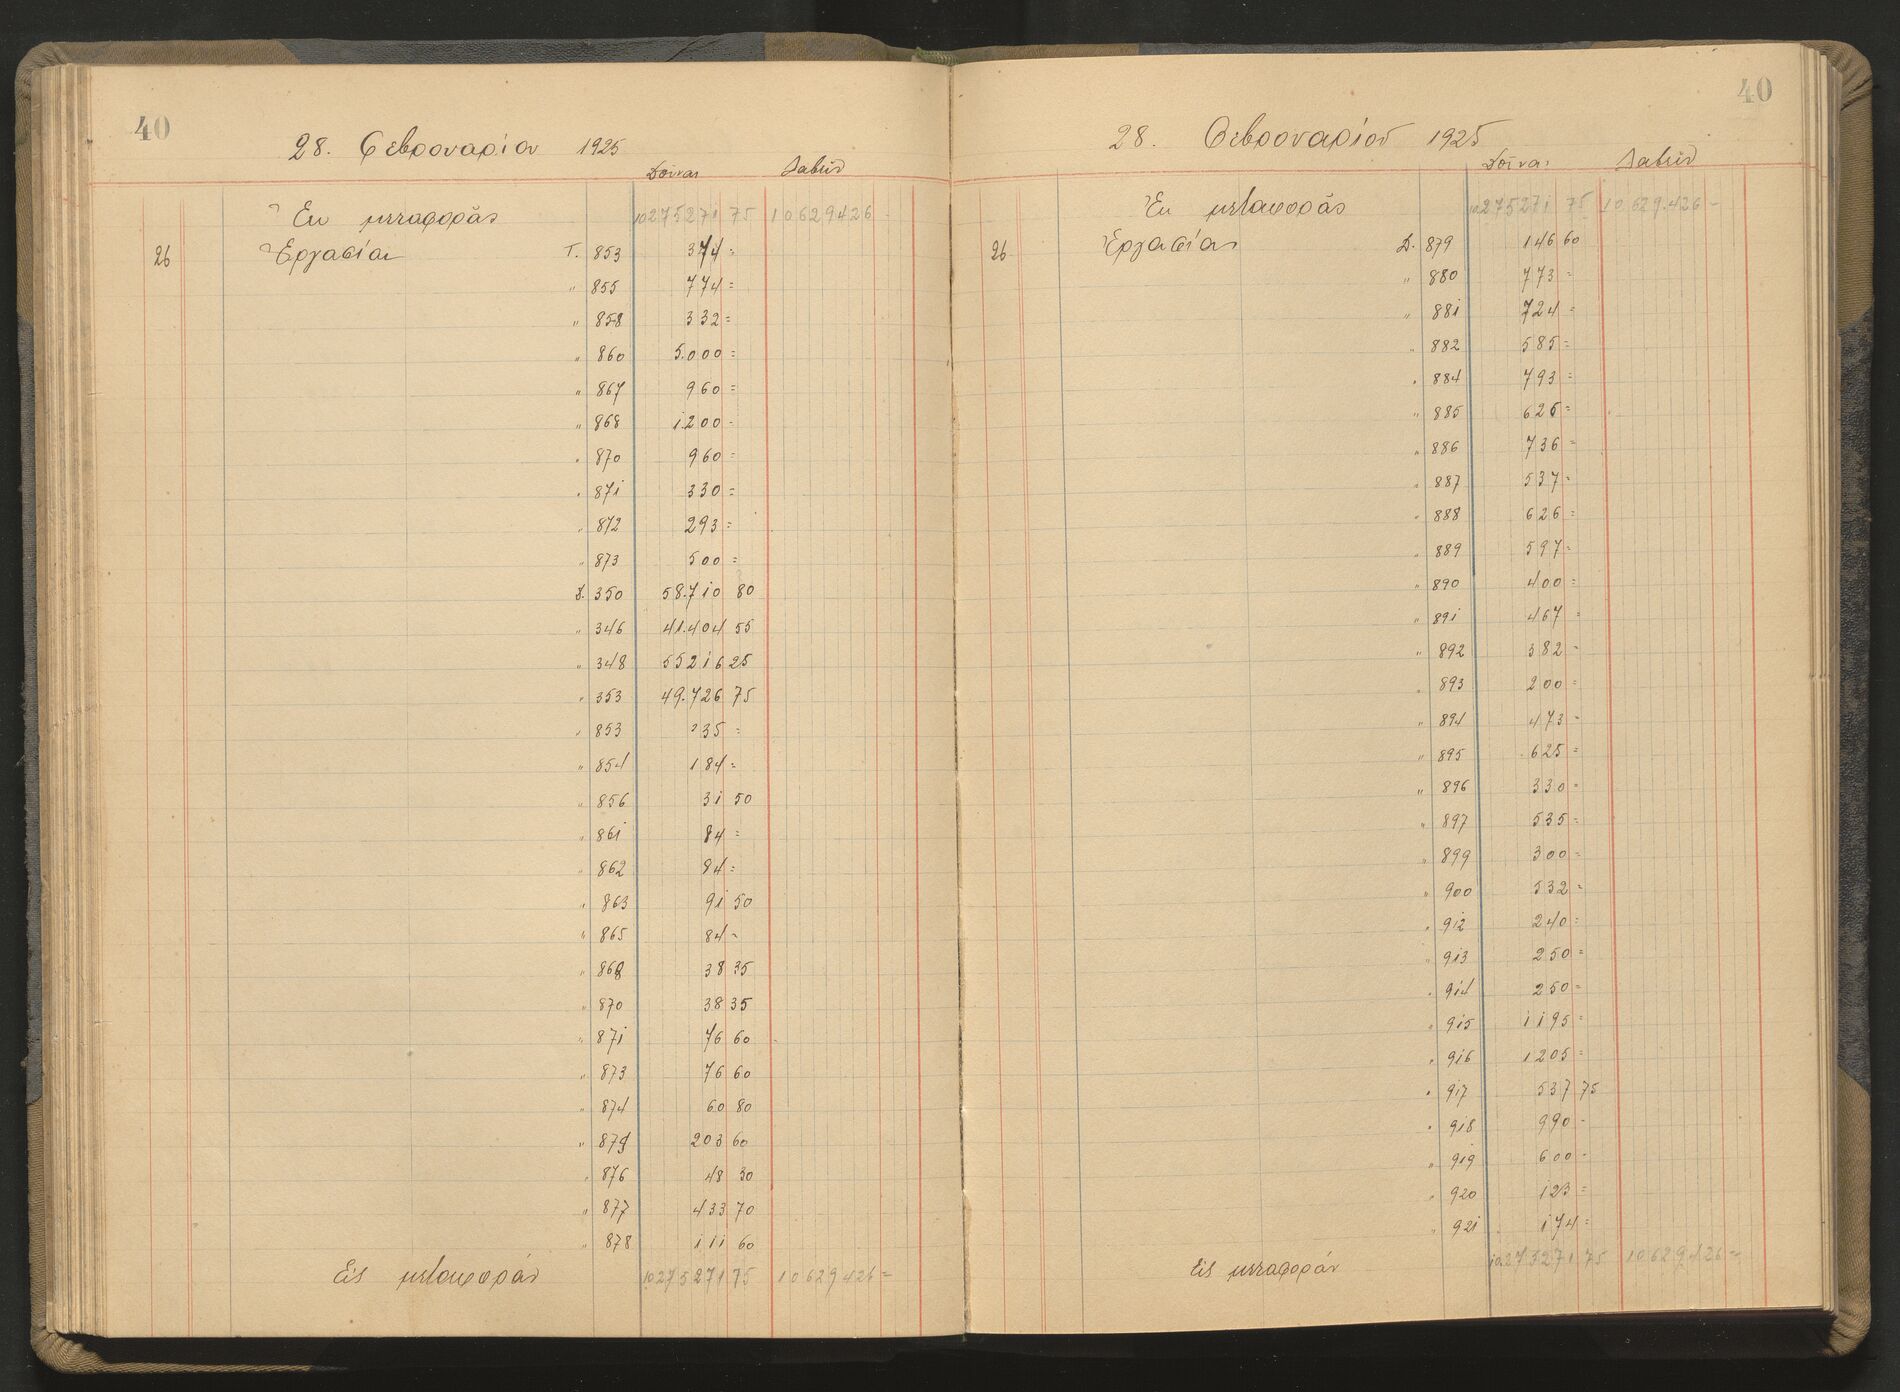 40
28. Φεβρουαρίου 1925
Δοῦναι Λαβεῖν
Ἐκ μεταφορᾶς 10275271 75 10629426 -
26 Ἐργασίαι Τ. 853 374 =
" 855 774 =
" 858 332 =
" 860 5.000 =
" 867 960 =
" 868 1.200 -
" 870 960 =
" 871 330 =
" 872 293 =
" 873 500 =
Δ. 350 58.710 80
" 346 41.404 55
" 348 55216 25
" 353 49.726 75
" 853 235 =
" 854 184 =
" 856 31 50
" 861 84 =
" 862 84 =
" 863 91 50
" 865 84 -
" 868 38 35
" 870 38 35
" 871 76 60
" 873 76 60
" 874 60 80
" 875 203 60
" 876 48 30
" 877 433 70
" 878 111 60
Εἰς μεταφοράν 10275271 75 10629426 =
40
28. Φεβρουαρίου 1925
Δοῦναι Λαβεῖν
Ἐκ μεταφορᾶς 10275271 75 10629.426 -
26 Ἐργασίαι Δ. 879 146 60
" 880 773 =
" 881 724 =
" 882 585 =
" 884 793 =
" 885 626 =
" 886 736 =
" 887 537 =
" 888 626 =
" 889 597 =
" 890 400 =
" 891 467 =
" 892 382 -
" 893 200 =
" 894 473 -
" 895 625 =
" 896 330 =
" 897 535 =
" 899 300 =
" 900 532 =
" 912 240 =
" 913 250 =
" 914 250 =
" 915 1195 =
" 916 1205 =
" 917 537 75
" 918 990 -
" 919 600 -
" 920 123 =
" 921 174 =
Εἰς μεταφοράν 10275271 75 10629426 =